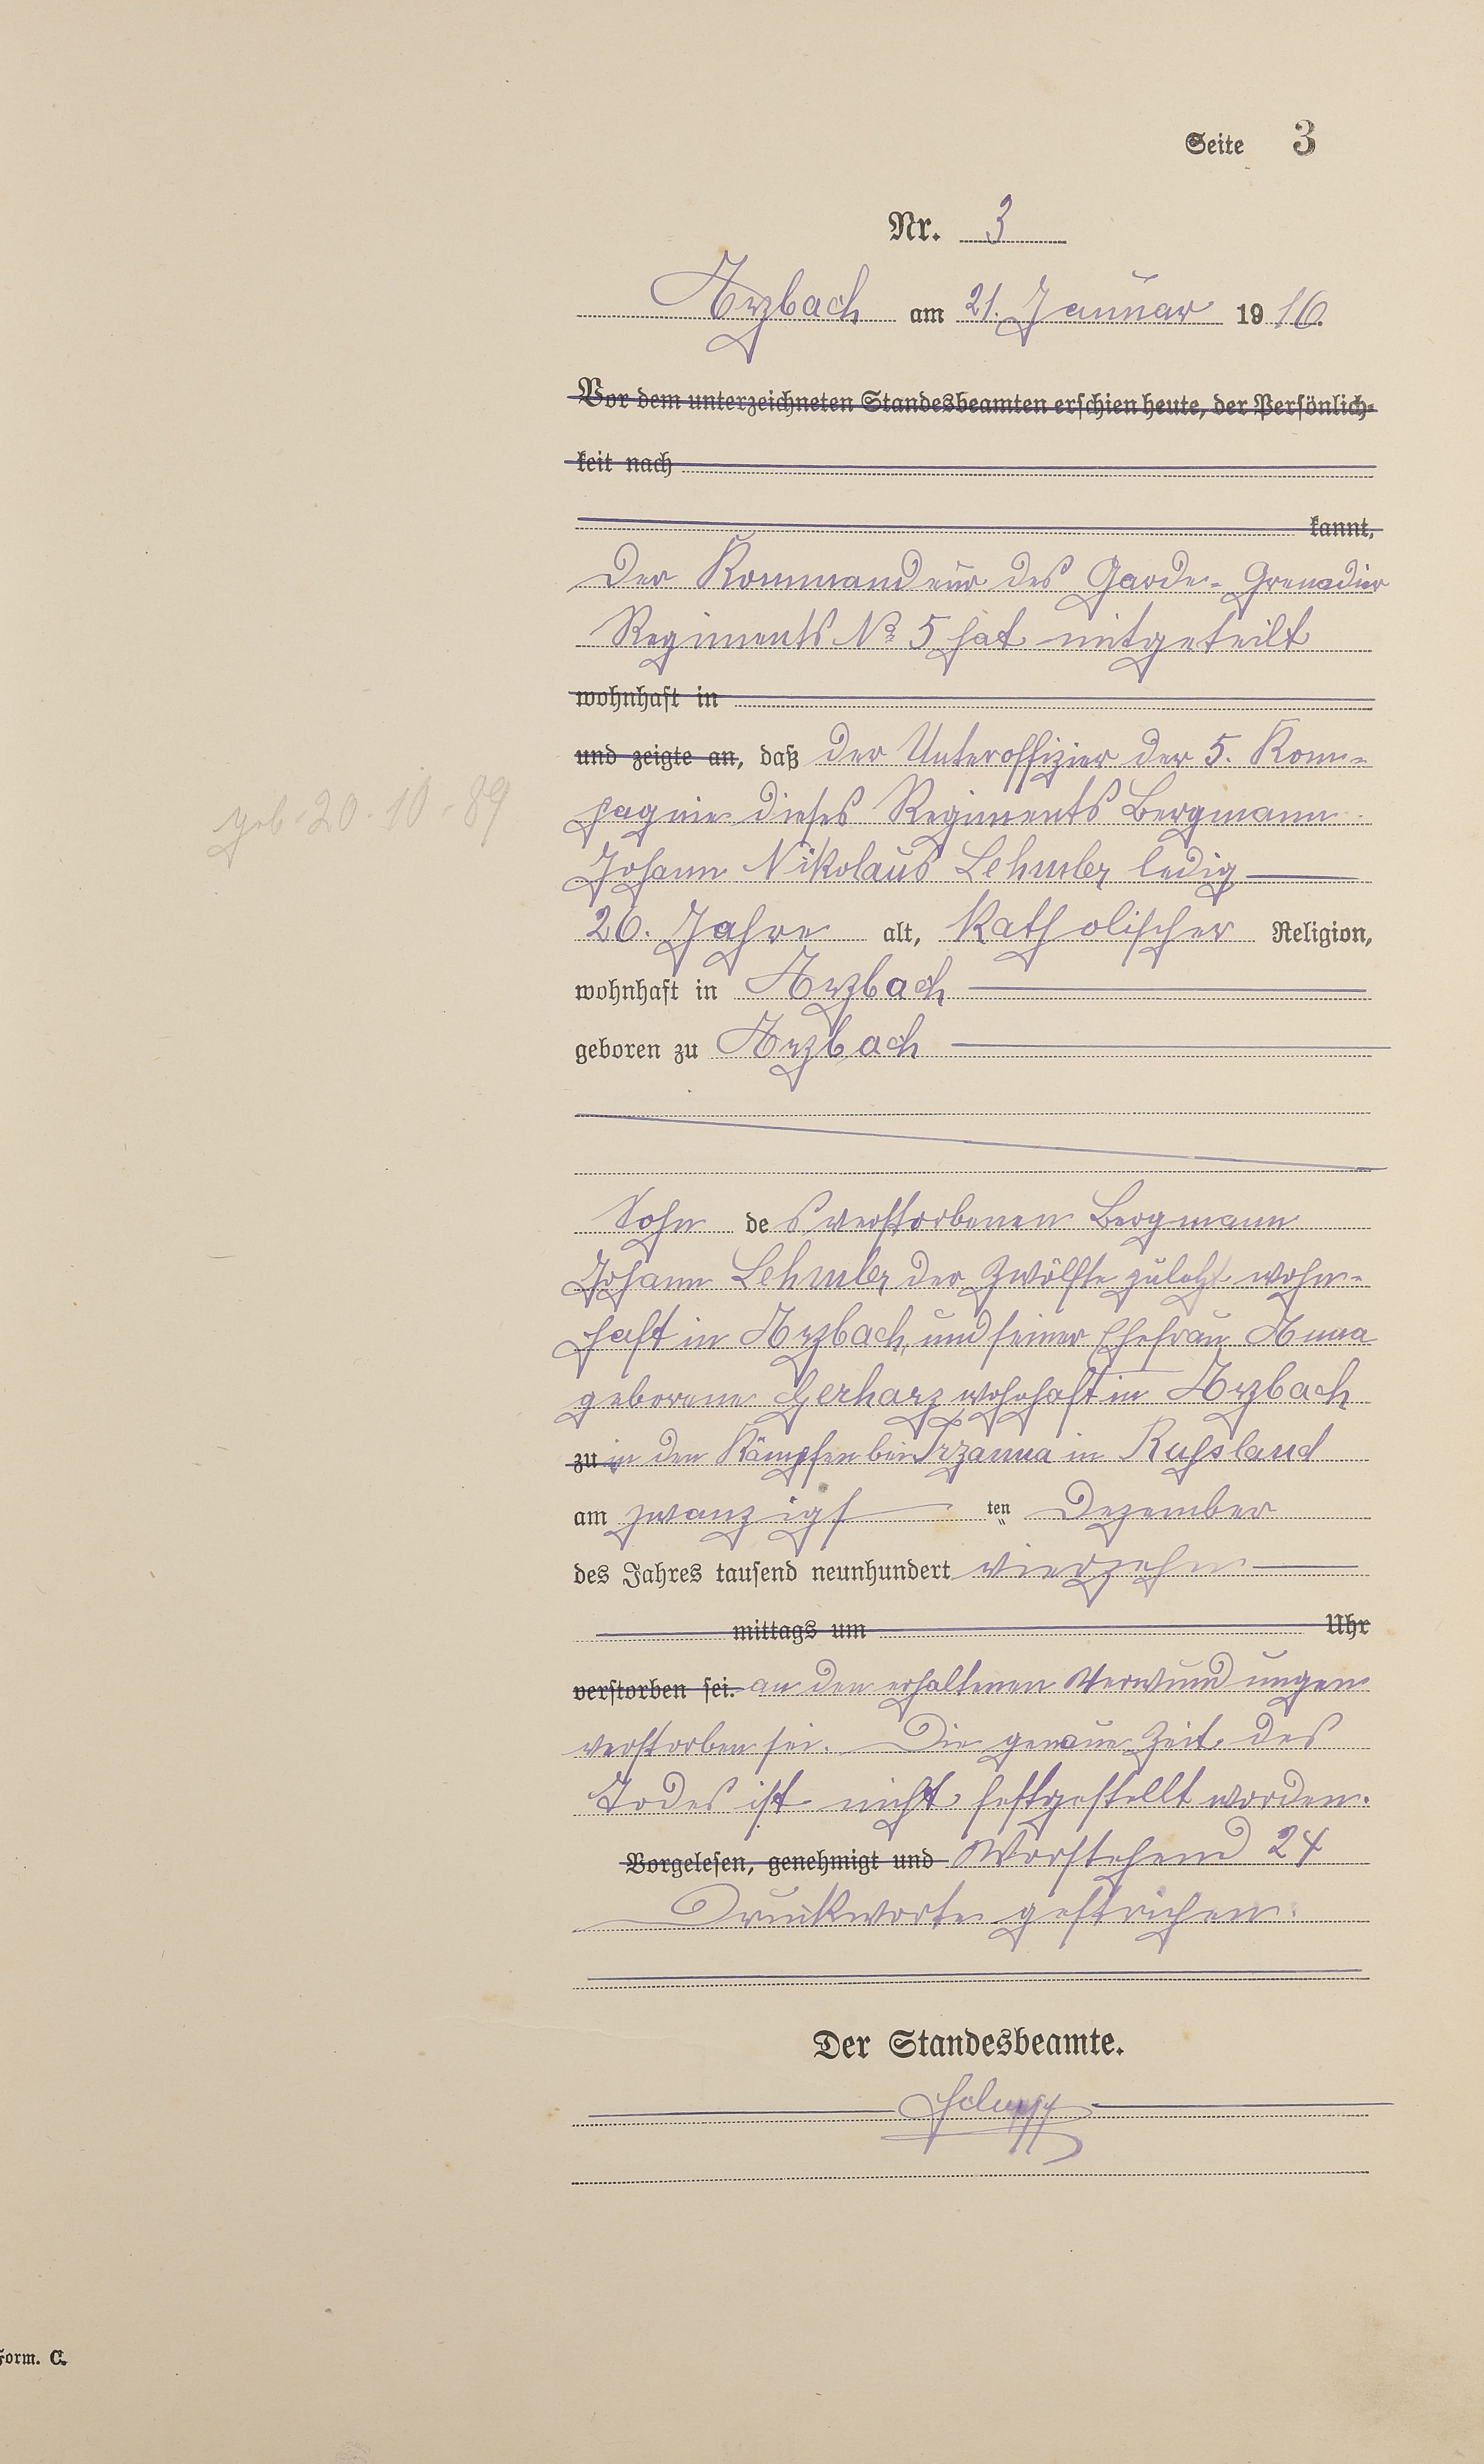 Seite 3
Nr. 3
Arzbach am 21. Januar 1916.
Vor dem unterzeichneten Standesbeamten erschien heute, der Persönlich-
keit nach
kannt,
Der Kommandeur des Garde-Grenadier
Regiments No 5 hat mitgeteilt
wohnhaft in
und zeigte an, daß der Unteroffizier der 5. Kom-
pagnie dieses Regiments Bergmann
geb. 20.10.89
Johann Nikolaus Lehmler ledig
26. Jahre alt, Katholischer Religion,
wohnhaft in Arzbach
geboren zu Arzbach
Sohn des verstorbenen Bergmann
Johann Lehmler der Zwölfte zuletzt wohn-
haft in Arzbach, und seiner Ehefrau Anna
geborene Gerharz wohnhaft in Arzbach
zu in den Kämpfen bei in Russland
am zwanzigsten Dezember
des Jahres tausend neunhundert vierzehn
mittags um Uhr
verstorben sei. an den erhaltenen Verwundungen
verstorben sei. Die genaue Zeit des
Todes ist nicht festgestellt worden.
Vorgelesen, genehmigt und Vorstehend 24
Druckworte gestrichen.
Der Standesbeamte.
Form. C.